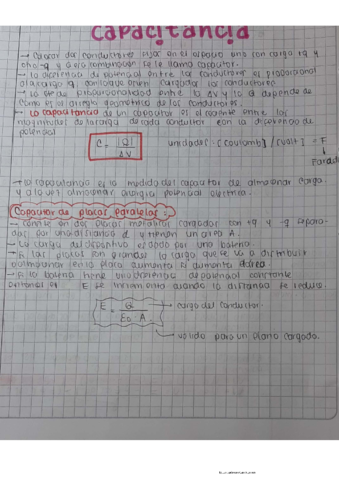 Capacitancia
→ Colocar dos conductores fijos en el espacio uno con carga +q y
otro -q y a esa combinación se le llama capacitor.
→ La diferencia de potencial entre los conductores es proporcional
a la carga q con la que están cargados los conductores
→ La cte de proporcionalidad entre la ΔV y la Q depende de
como es el arreglo geométrico de los conductores.
→ La capacitancia de un capacitor es el cociente entre las
magnitudes de la carga de cada conductor con la diferencia de
potencial
C = |Q| / ΔV unidades: [coulomb] / [volt] = F
Farads
→ la capacitancia es la medida del capacitor de almacenar carga
y a la vez almacenar energía potencial eléctrica.
Capacitor de placas paralelas:
→ Consite en dos placas metálicas cargadas con +q y -q separa-
das por una distancia d y tienen un área A.
→ La carga del dispositivo es dado por una batería.
→ Si las placas son grandes la carga que se va a distribuir
y almacenar en la placa aumenta si aumenta área.
→ Si la batería tiene una diferencia de potencial constante
E se incrementa cuando la distancia se reduce.
E = Q / Eo A → carga del conductor.
→ valido para un plano cargado.